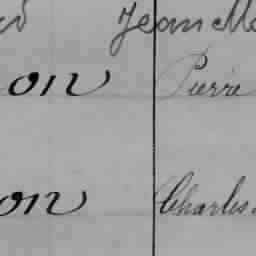 Jean Ma
on Pierre
on Charles